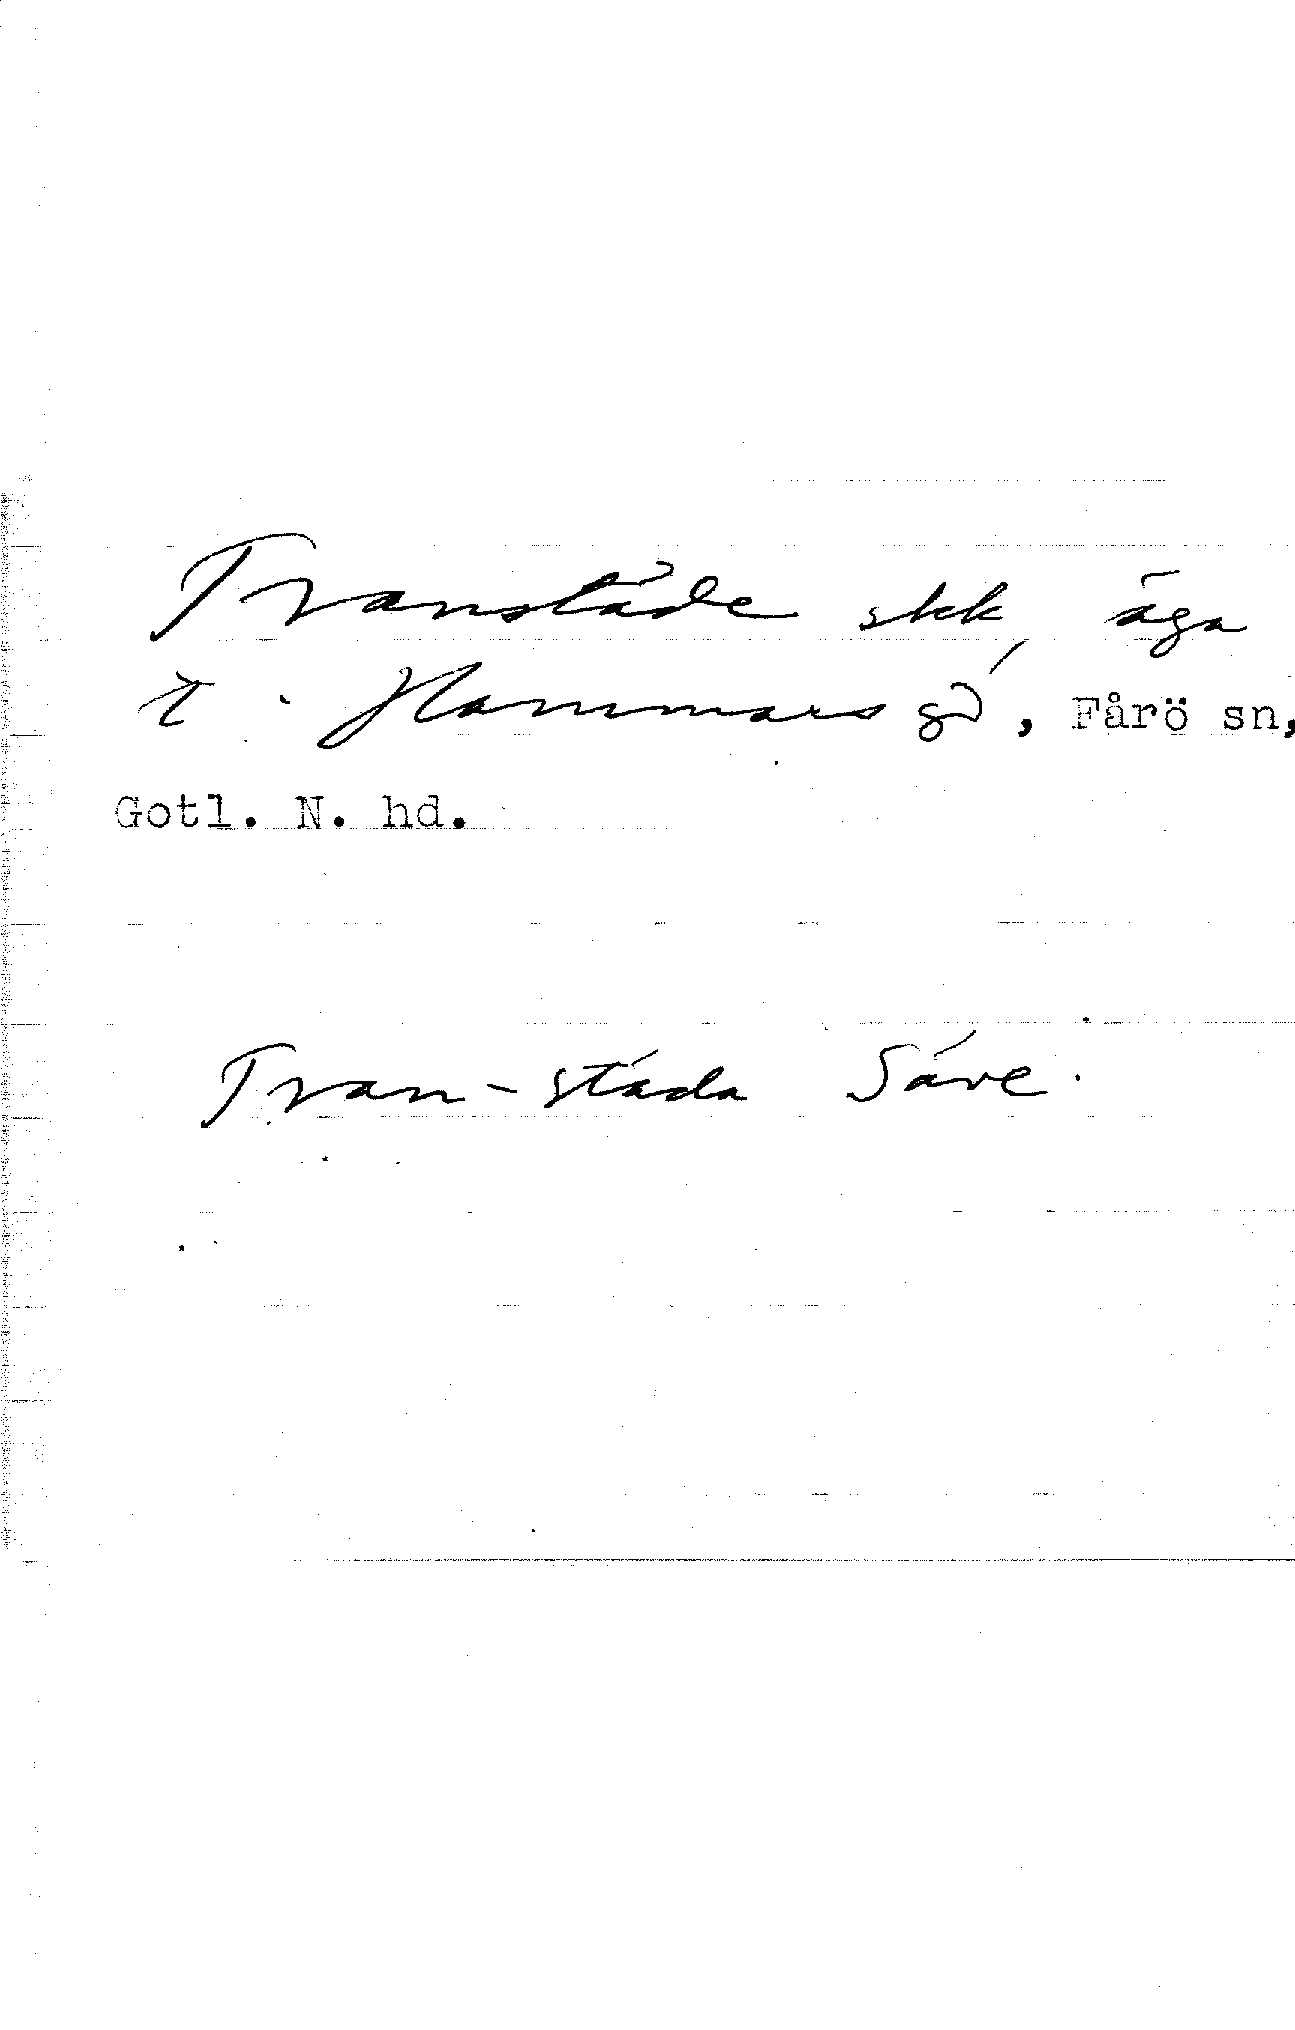 Transtäde skk, äga
t. Hammars gd, Fårö sn,
Gotl. N. hd.
Tran-stáda Säve.